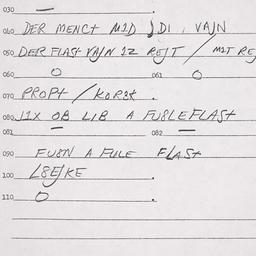 030 —
040 DER MENCT MID DI, VAJN
050 DER FLAST VAJN IZ REJT / MIT REJ
060 O 061 O
070 PROPT / KORST.
080 LIX OB LIB A FUSLEFLAST
081 — 082 —
090 FUSN A FULE FLAST
100 LSEJKE
110 O